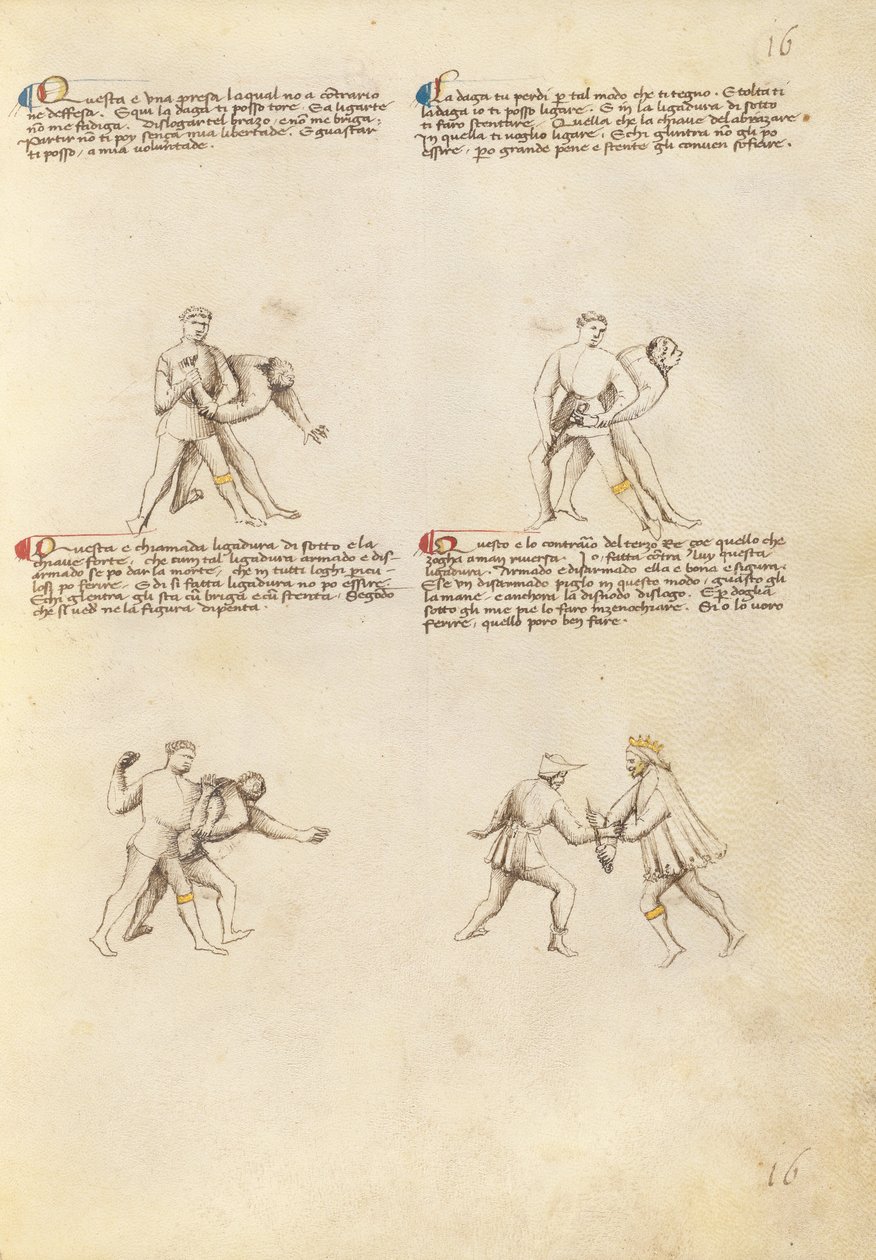 16
Questa e una presa la qual no a contrario
ne deffesa. E qui la daga ti posso tore. E a ligarte
no me fadiga. Dislogar tel brazo, e no me briga.
Partir no ti poy senza mia libertade. E guastar
ti posso, a mia voluntade.
La daga tu perdi p tal modo che ti tegno. E tolta ti
la daga io ti posso ligare. E in la ligadura di sotto
ti faro stentare. Quella che la chiave del abrazare
In quella ti voglio ligare. E chi gl'intra no gli po
essire, p o grande pene e stente gli conven sofrire.
Questa e chiamada ligadura di sotto e la
chiave forte, che cum tal ligadura armado e dis-
armado se po dar la morte, che in tutti loghi pricu-
losi po ferire. E di si fatta ligadura no po essire.
E chi gl'entra gli sta cu briga e cu stenta, Segondo
che si vede ne la figura dipenta.
Questo e lo contrario del terzo Re çoe quello che
zogha a man riversa. Io o fatta contra luy questa
ligadura. Armado e disarmado ella e bona e sigura.
E se un disarmado piglo in questo modo, guasto gli
la mane, e anchora la disnodo dislogo. E p doglia
sotto gli mie pie lo faro inzenochiare. Si o lo voro
ferire, quello poro ben fare.
16